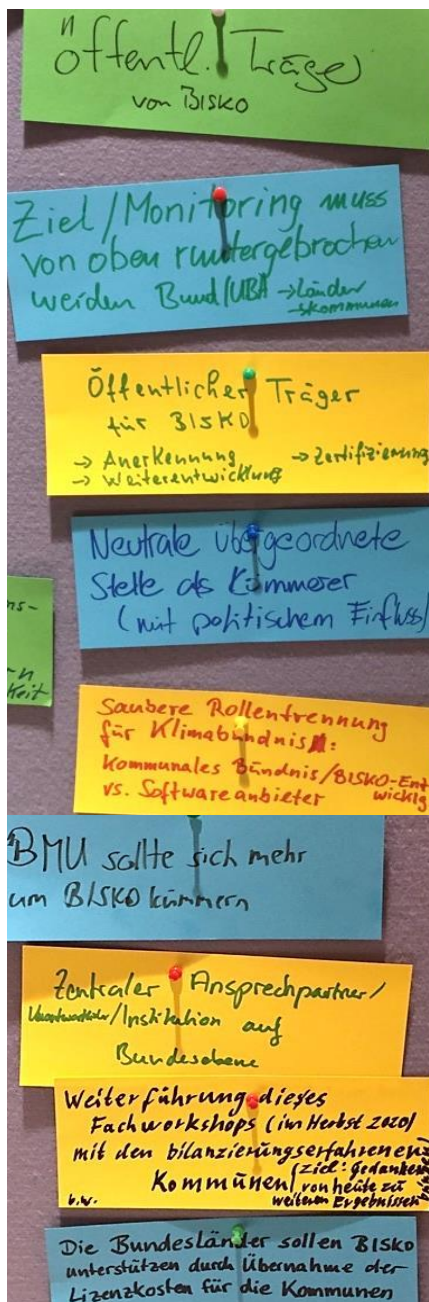 "
öffentl. Träger
von BISKO
Ziel/Monitoring muss
von oben runtergebrochen
werden Bund/UBA → Länder
→ Kommunen
Öffentlicher Träger
für BISKO
→ Anerkennung → Zertifizierung
→ Weiterentwicklung
Neutrale übergeordnete
Stelle als Kümmerer
(mit politischem Einfluss)
ns-
n
keit
Saubere Rollentrennung
für Klimabündnis:
Kommunales Bündnis/BISKO-Ent
wicklg
vs. Softwareanbieter
BMU sollte sich mehr
um BISKO kümmern
Zentraler Ansprechpartner/
Verantwortlicher/Institution auf
Bundesebene
Weiterführung dieses
Fachworkshops (im Herbst 2020)
mit den bilanzierungserfahrenen
Kommunen (Ziel: Gedanken
von heute zu
weiteren Ergebnissen
b.w.
Die Bundesländer sollen BISKO
unterstützen durch Übernahme der
Lizenzkosten für die Kommunen